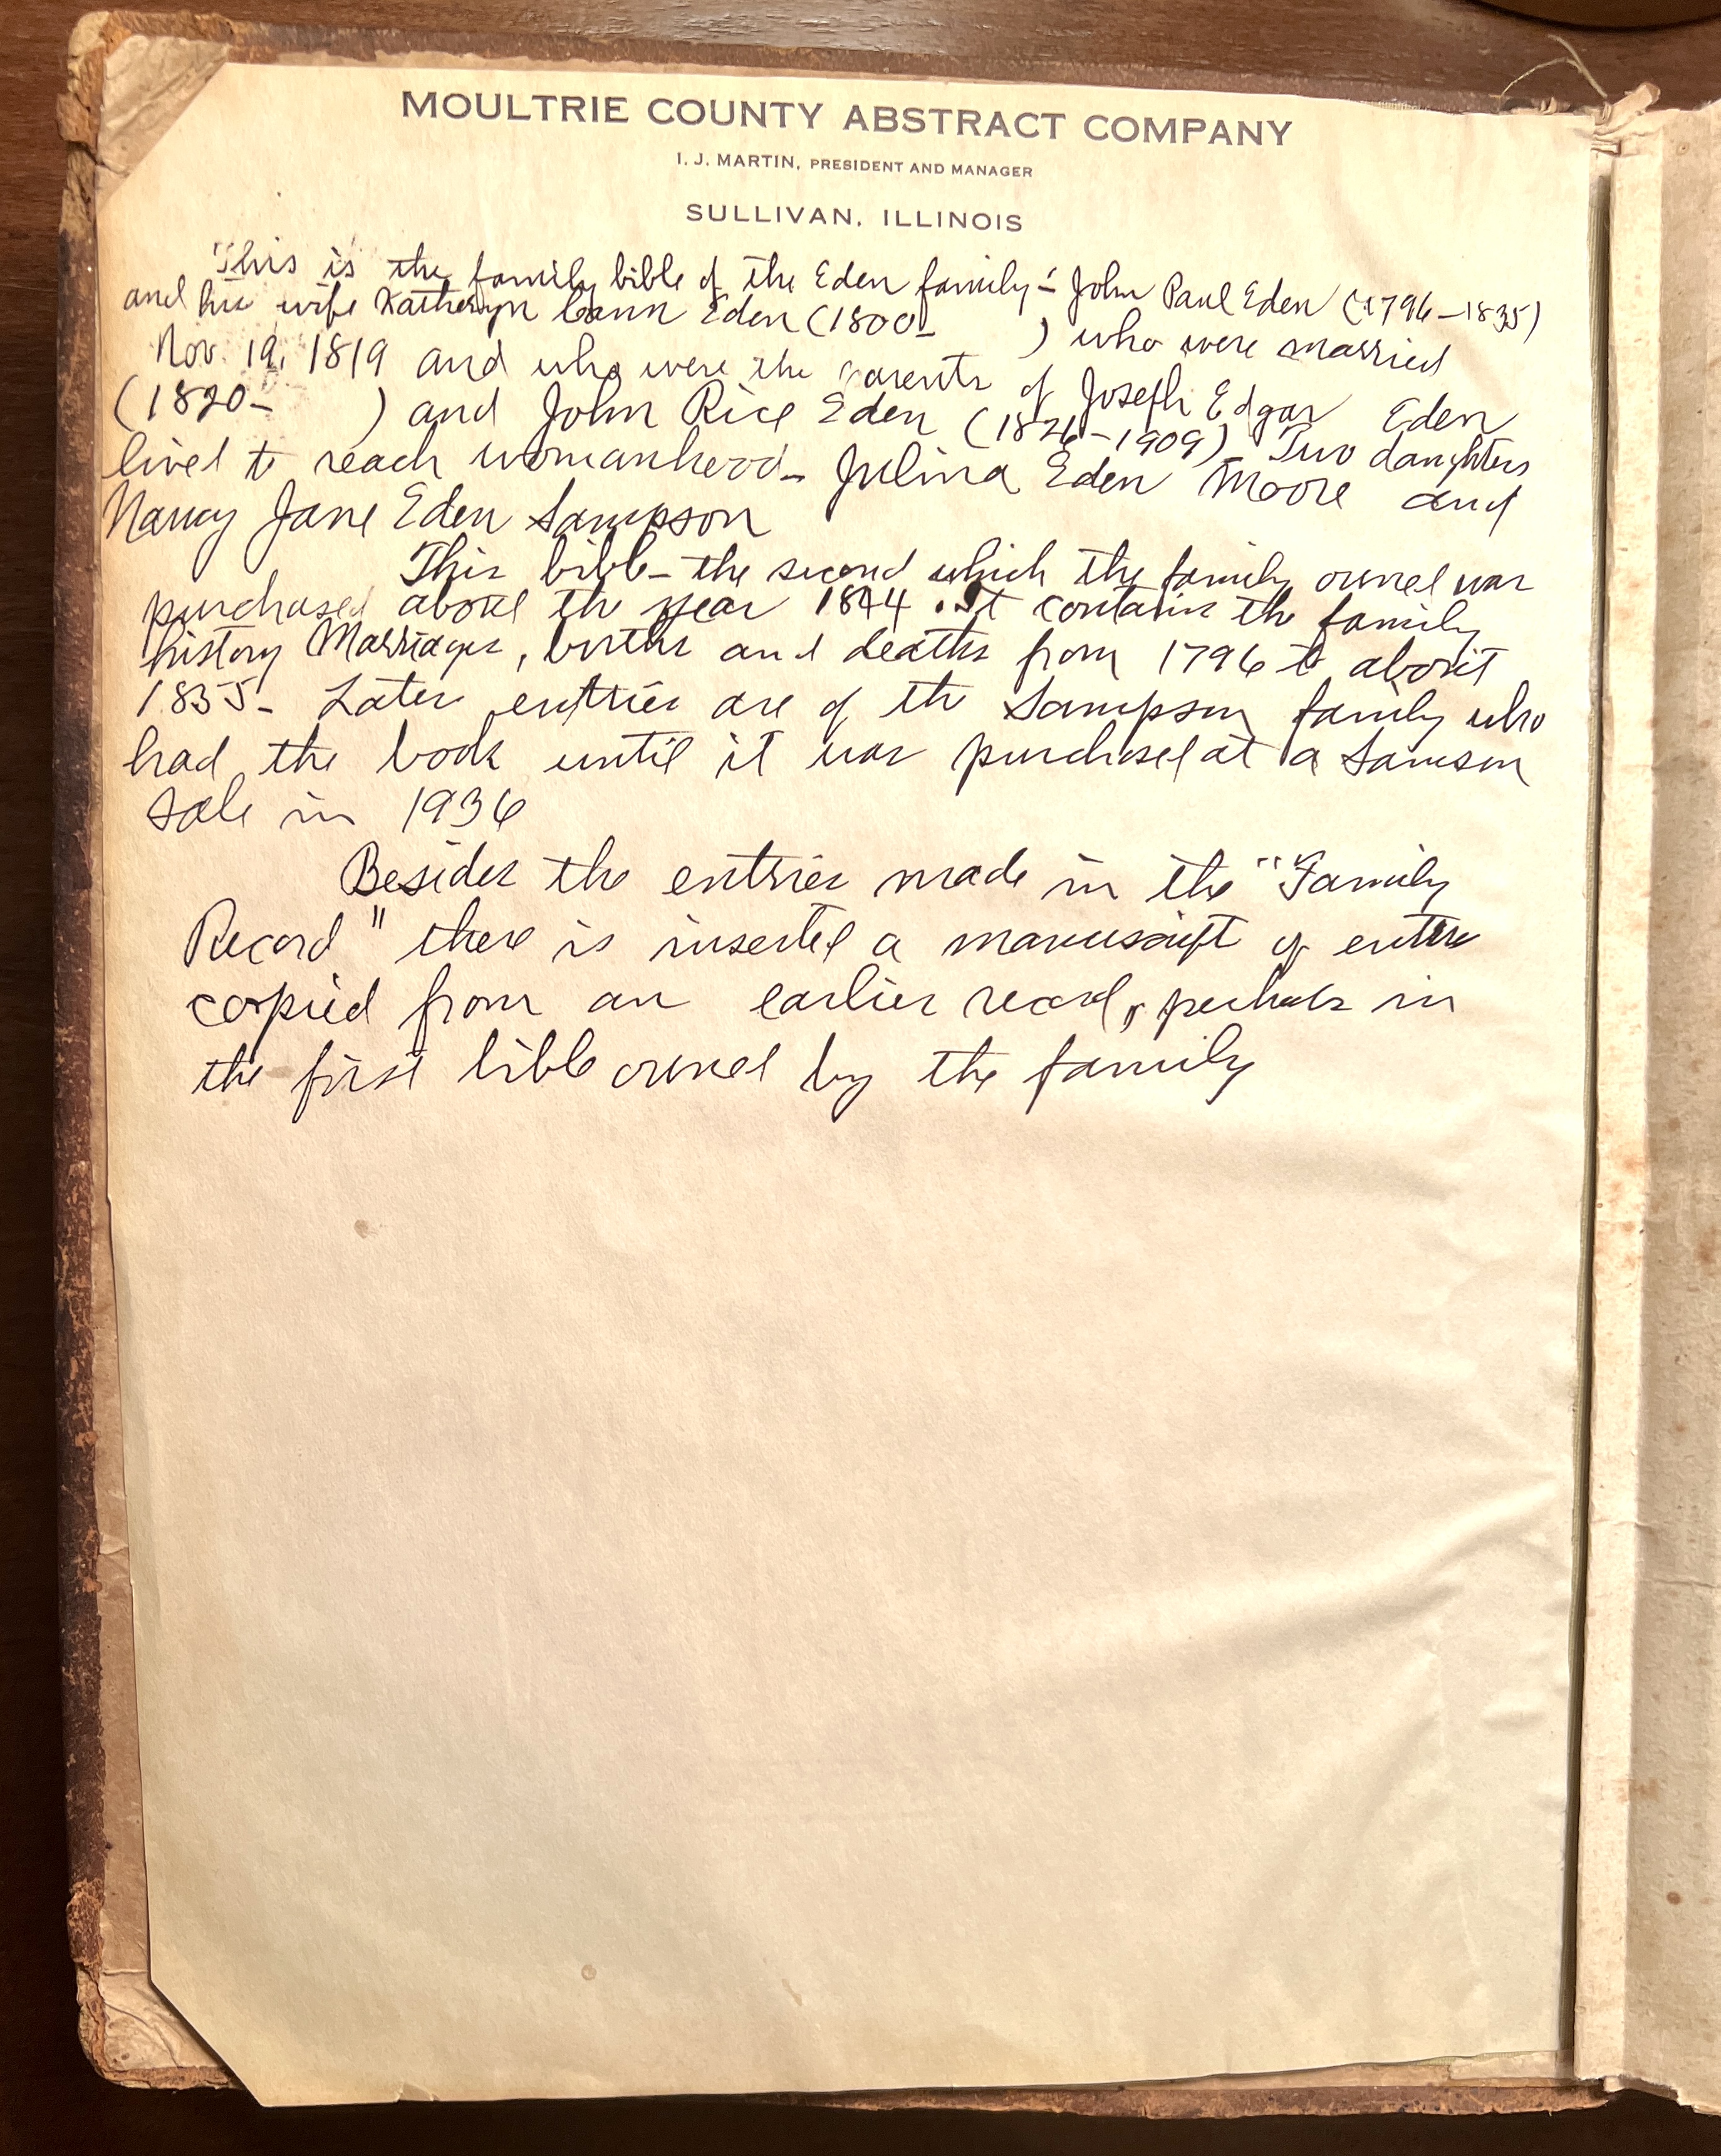 MOULTRIE COUNTY ABSTRACT COMPANY
I. J. MARTIN, PRESIDENT AND MANAGER
SULLIVAN, ILLINOIS
This is the family bible of the Eden family - John Paul Eden (1796-1835)
and his wife Katheryn Cann Eden (1800- ) who were married
Nov. 19, 1819 and who were the parents of Joseph Edgar Eden
(1820- ) and John Rice Eden (1826-1909) Two daughters
lived to reach womanhood - Julina Eden Moore and
Nancy Jane Eden Sampson
This bible - the second which the family owned was
purchased about the year 1844. It contains the family
history Marriages, births and deaths from 1796 to about
1835- Later entries are of the Sampson family who
had the book until it was purchased at a Samson
sale in 1936
Besides the entries made in the "Family
Record" there is inserted a manuscript of entries
copied from an earlier record, perhaps in
the first bible owned by the family